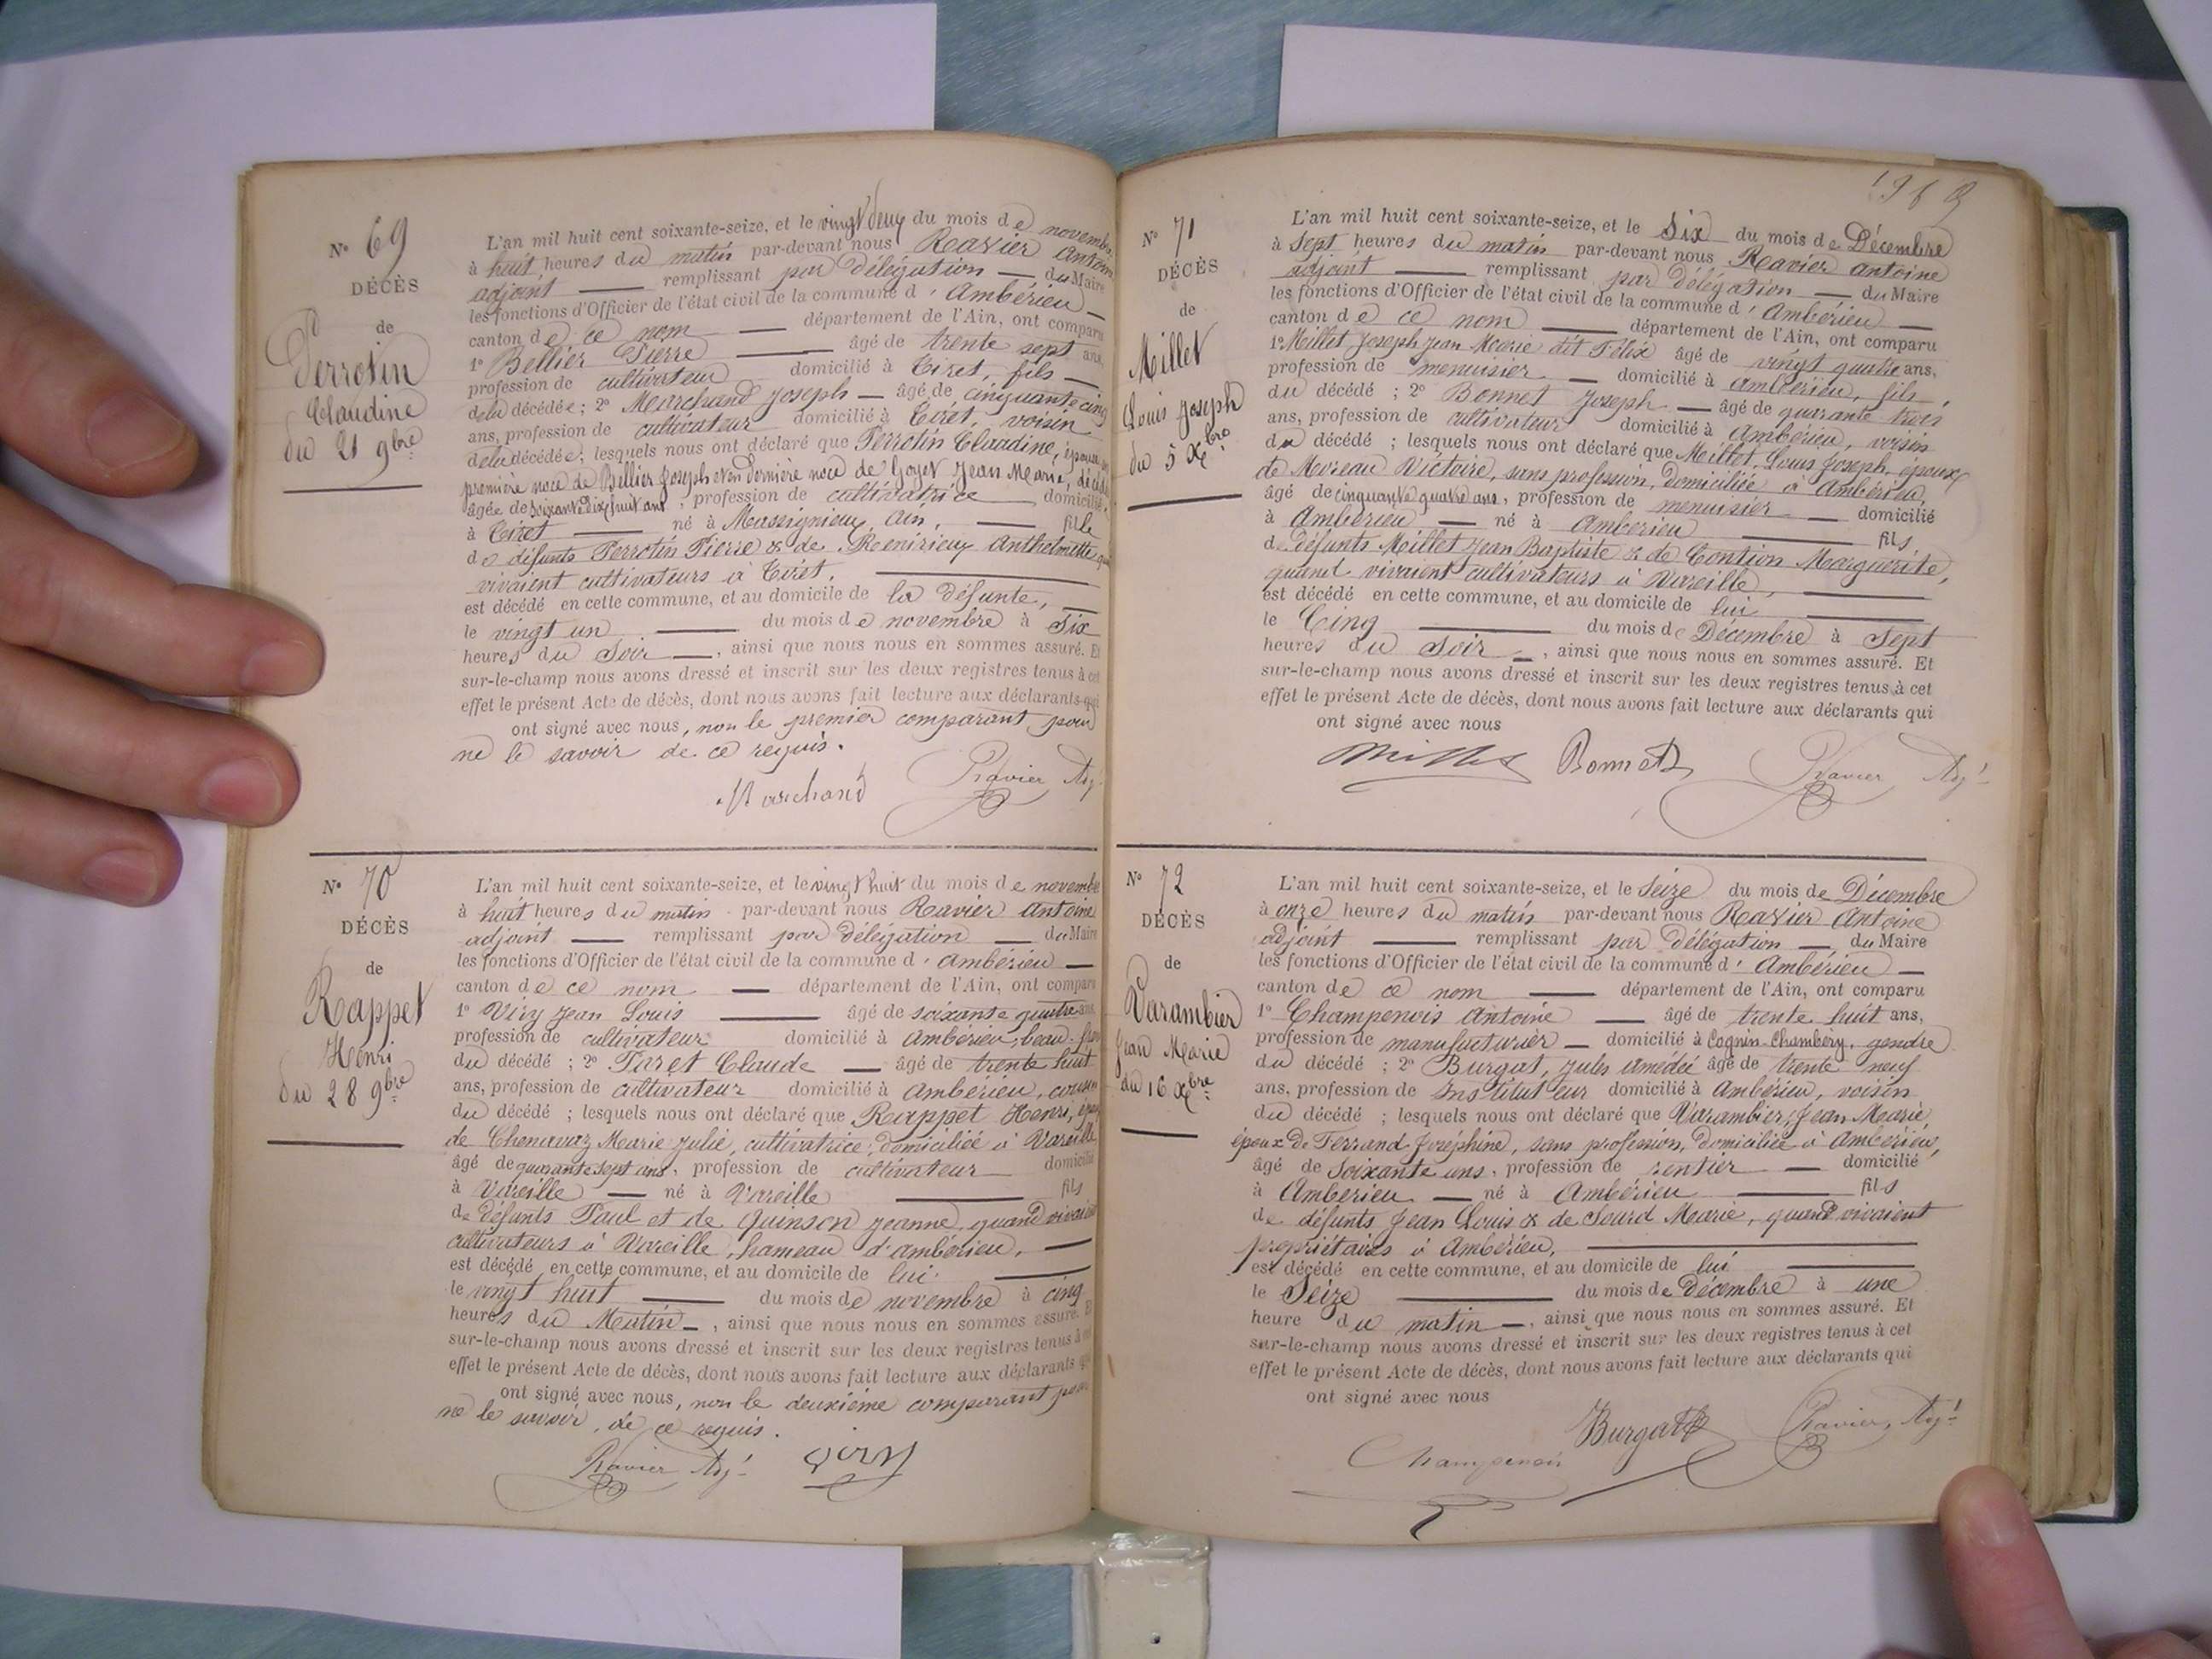 Nº 69
DÉCÈS
de
Perrotin
Claudine
du 21 9bre
L'an mil huit cent soixante-seize, et le vingt deux du mois de novembre
à huit heures du matin par-devant nous Ravier Antoine
adjoint remplissant par délégation du Maire
les fonctions d'Officier de l'état civil de la commune d'Ambérieu
canton de ce nom département de l'Ain, ont comparu
1º Bellier Pierre âgé de trente sept ans,
profession de cultivateur domicilié à Tiret, fils
de la décédée ; 2º Marchand Joseph âgé de cinquante cinq
ans, profession de cultivateur domicilié à Tiret, voisin
de la décédée ; lesquels nous ont déclaré que Perrotin Claudine, épouse en
première noce de Bellier Joseph et en dernière noce de Goyet Jean Marie, décédé
âgée de soixante dix huit ans, profession de cultivatrice domicilié
à Tiret né à Massignieu, Ain, fille
de défunts Perrotin Pierre & de Anthelmette qui
vivaient cultivateurs à Tiret,
est décédé en cette commune, et au domicile de la défunte,
le vingt un du mois de novembre à Six
heures du Soir, ainsi que nous nous en sommes assuré. Et
sur-le-champ nous avons dressé et inscrit sur les deux registres tenus à cet
effet le présent Acte de décès, dont nous avons fait lecture aux déclarants qui
ont signé avec nous, non le premier comparant pour
ne le savoir de ce requis.
Marchand Ravier Adj.
Nº 70
DÉCÈS
de
Rappet
Henri
du 28 9bre
L'an mil huit cent soixante-seize, et le vingt huit du mois de novembre
à huit heures du matin par-devant nous Ravier Antoine
adjoint remplissant par délégation du Maire
les fonctions d'Officier de l'état civil de la commune d'Ambérieu
canton de ce nom département de l'Ain, ont comparu
1º Viry Jean Louis âgé de soixante quatre ans,
profession de cultivateur domicilié à Ambérieu, beau-
du décédé ; 2º Claude âgé de trente huit
ans, profession de cultivateur domicilié à Ambérieu, cousin
du décédé ; lesquels nous ont déclaré que Rappet Henri, époux
de Chenavaz Marie Julie, cultivatrice, domiciliée à Vareille
âgé de quarante sept ans, profession de cultivateur domicilié
à Vareille né à Vareille fils
de défunts Paul et de Quinson Jeanne, quand vivaient
cultivateurs à Vareille, hameau d'Ambérieu,
est décédé en cette commune, et au domicile de lui.
le vingt huit du mois de novembre à cinq
heures du Matin, ainsi que nous nous en sommes assuré. Et
sur-le-champ nous avons dressé et inscrit sur les deux registres tenus à cet
effet le présent Acte de décès, dont nous avons fait lecture aux déclarants qui
ont signé avec nous, non le deuxième comparant pour
ne le savoir, de ce requis.
Ravier Adj. Viry
Nº 71
DÉCÈS
de
Millet
Louis Joseph
du 5 Xbre
L'an mil huit cent soixante-seize, et le Six du mois de Décembre
à Sept heures du matin par-devant nous Ravier Antoine
adjoint remplissant par délégation du Maire
les fonctions d'Officier de l'état civil de la commune d'Ambérieu
canton de ce nom département de l'Ain, ont comparu
1º Millet Joseph Jean Marie dit Félix âgé de vingt quatre ans,
profession de menuisier domicilié à Ambérieu, fils,
du décédé ; 2º Bonnet Joseph âgé de quarante trois
ans, profession de cultivateur domicilié à Ambérieu, voisin
du décédé ; lesquels nous ont déclaré que Millet, Louis Joseph, époux
de Moreau Victoire, sans profession, domiciliée à Ambérieu,
âgé de cinquante quatre ans, profession de menuisier domicilié
à Ambérieu né à Ambérieu fils
de défunts Millet Jean Baptiste & de Contion Marguerite,
quand vivaient cultivateurs à Vareille,
est décédé en cette commune, et au domicile de lui
le Cinq du mois de Décembre à Sept
heures du Soir, ainsi que nous nous en sommes assuré. Et
sur-le-champ nous avons dressé et inscrit sur les deux registres tenus à cet
effet le présent Acte de décès, dont nous avons fait lecture aux déclarants qui
ont signé avec nous
Millet Bonnet Ravier Adj.
Nº 72
DÉCÈS
de
Varambier
Jean Marie
du 16 Xbre
L'an mil huit cent soixante-seize, et le Seize du mois de Décembre
à onze heures du matin par-devant nous Ravier Antoine
adjoint remplissant par délégation du Maire
les fonctions d'Officier de l'état civil de la commune d'Ambérieu
canton de ce nom département de l'Ain, ont comparu
1º Champenois Antoine âgé de trente huit ans,
profession de manufacturier domicilié à Cognin-Chambéry, gendre
du décédé ; 2º Burgat, Jules Amédée âgé de trente neuf
ans, profession de Instituteur domicilié à Ambérieu, voisin
du décédé ; lesquels nous ont déclaré que Varambier, Jean Marie
époux de Ferrand Joséphine, sans profession, domiciliée à Ambérieu,
âgé de Soixante ans, profession de rentier domicilié
à Ambérieu né à Ambérieu fils
de défunts Jean Louis & de Sourd Marie, quand vivaient
propriétaires à Ambérieu,
est décédé en cette commune, et au domicile de lui
le Seize du mois de Décembre à une
heure du matin, ainsi que nous nous en sommes assuré. Et
sur-le-champ nous avons dressé et inscrit sur les deux registres tenus à cet
effet le présent Acte de décès, dont nous avons fait lecture aux déclarants qui
ont signé avec nous
Champenois Burgat Ravier, Adj.